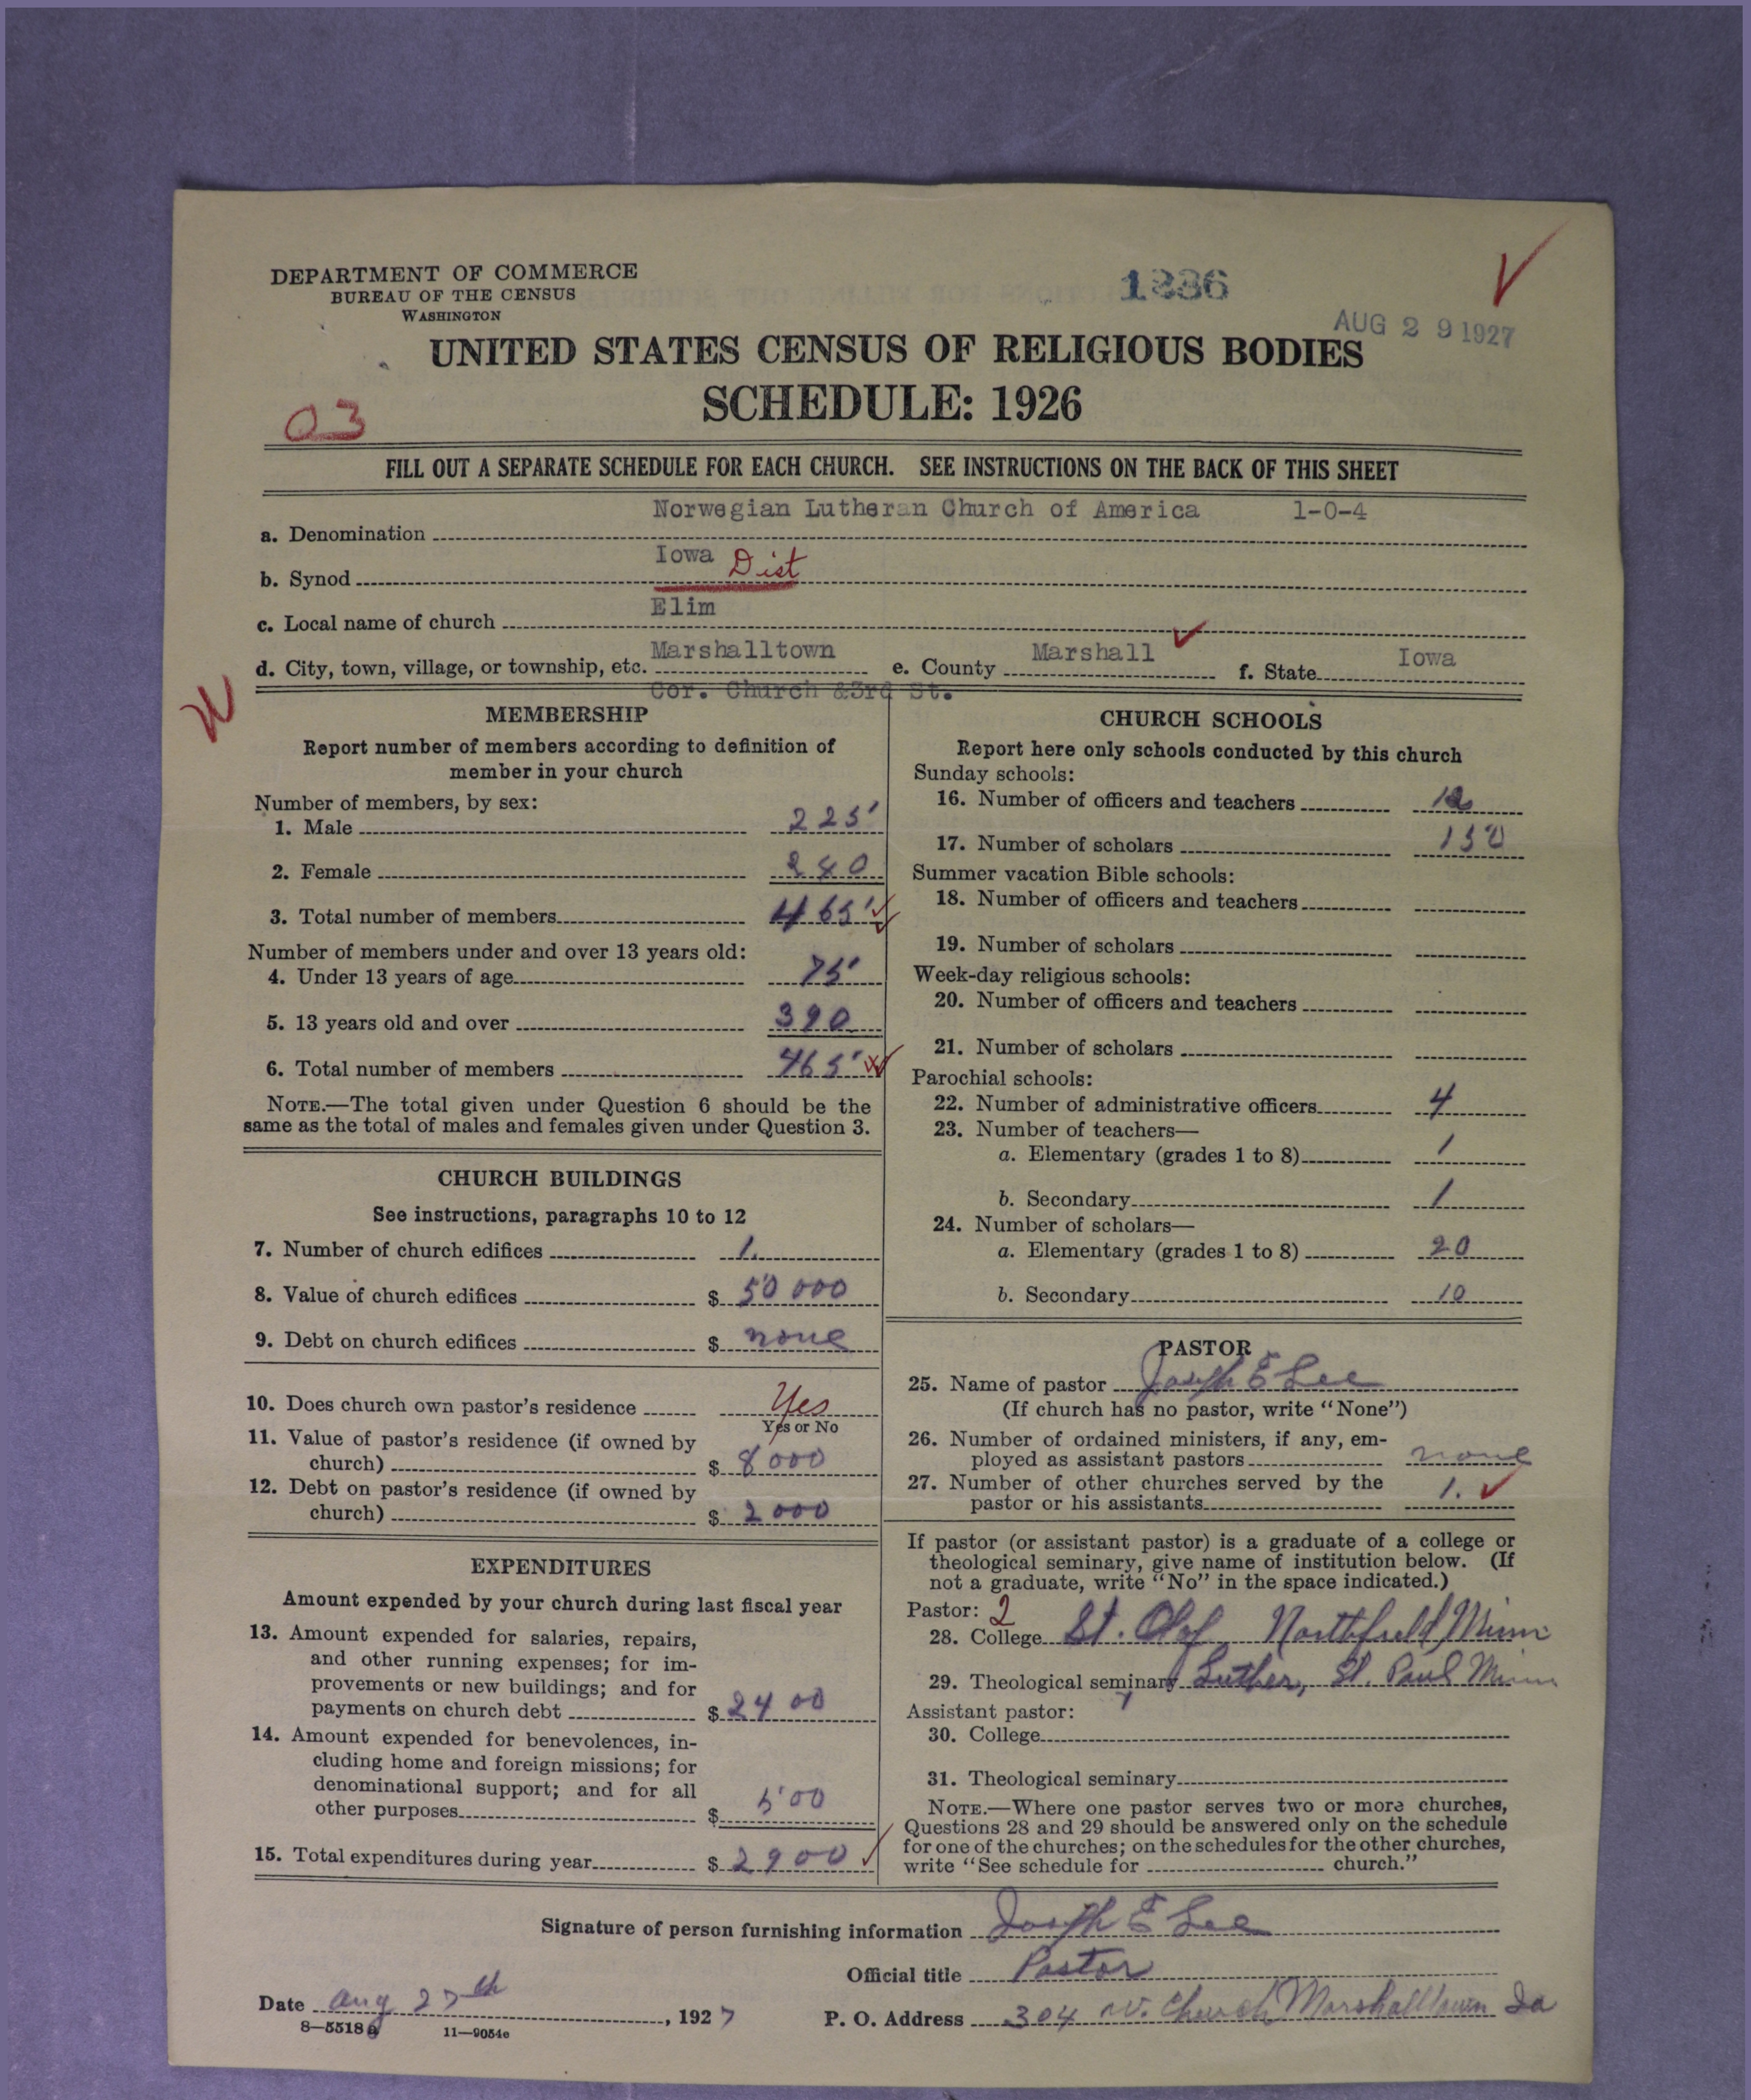 DEPARTMENT OF COMMERCE
BUREAU OF THE CENSUS
WASHINGTON
1236
AUG 29 1927
UNITED STATES CENSUS OF RELIGIOUS BODIES
SCHEDULE: 1926
03
FILL OUT A SEPARATE SCHEDULE FOR EACH CHURCH. SEE INSTRUCTIONS ON THE BACK OF THIS SHEET
a. Denomination Norwegian Lutheran Church of America 1-0-4
b. Synod Iowa Dist
c. Local name of church Elim
d. City, town, village, or township, etc. Marshalltown e. County Marshall f. State Iowa
Cor. Church &3rd St.
MEMBERSHIP
Report number of members according to definition of
member in your church
Number of members, by sex:
1. Male 225
2. Female 240
3. Total number of members 465
Number of members under and over 13 years old:
4. Under 13 years of age 75
5. 13 years old and over 390
6. Total number of members 465
NOTE.—The total given under Question 6 should be the
same as the total of males and females given under Question 3.
CHURCH BUILDINGS
See instructions, paragraphs 10 to 12
7. Number of church edifices 1.
8. Value of church edifices $ 50 000
9. Debt on church edifices $ none
10. Does church own pastor's residence Yes
Yes or No
11. Value of pastor's residence (if owned by
church) $ 8000
12. Debt on pastor's residence (if owned by
church) $ 2000
EXPENDITURES
Amount expended by your church during last fiscal year
13. Amount expended for salaries, repairs,
and other running expenses; for im-
provements or new buildings; and for
payments on church debt $ 2400
14. Amount expended for benevolences, in-
cluding home and foreign missions; for
denominational support; and for all
other purposes $ 500
15. Total expenditures during year $ 2900
CHURCH SCHOOLS
Report here only schools conducted by this church
Sunday schools:
16. Number of officers and teachers
17. Number of scholars 150
Summer vacation Bible schools:
18. Number of officers and teachers
19. Number of scholars
Week-day religious schools:
20. Number of officers and teachers
21. Number of scholars
Parochial schools:
22. Number of administrative officers 4
23. Number of teachers—
a. Elementary (grades 1 to 8) 1
b. Secondary 1
24. Number of scholars—
a. Elementary (grades 1 to 8) 20
b. Secondary 10
PASTOR
25. Name of pastor Joseph E Lee
(If church has no pastor, write "None")
26. Number of ordained ministers, if any, em-
ployed as assistant pastors none
27. Number of other churches served by the
pastor or his assistants 1.
If pastor (or assistant pastor) is a graduate of a college or
theological seminary, give name of institution below. (If
not a graduate, write "No" in the space indicated.)
Pastor: 2
28. College St. Olaf Northfield Minn
29. Theological seminary Luther, St. Paul Minn
Assistant pastor:
30. College
31. Theological seminary
NOTE.—Where one pastor serves two or more churches,
Questions 28 and 29 should be answered only on the schedule
for one of the churches; on the schedules for the other churches,
write "See schedule for church."
Signature of person furnishing information Joseph E Lee
Official title Pastor
Date Aug 27th, 1927 P. O. Address 304 W. Church Marshalltown Ia
8—5518a 11—9054e